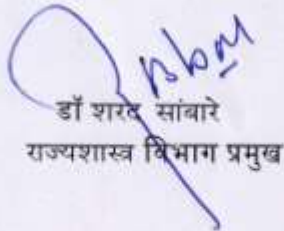 डॉ शरद सांबारे
राज्यशास्त्र विभाग प्रमुख